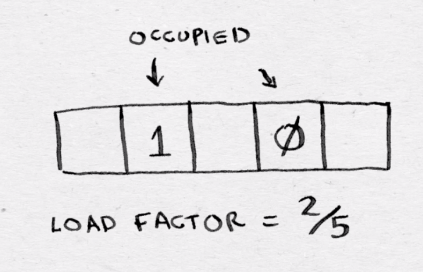 OCCUPIED
1 Ø
LOAD FACTOR = 2/5